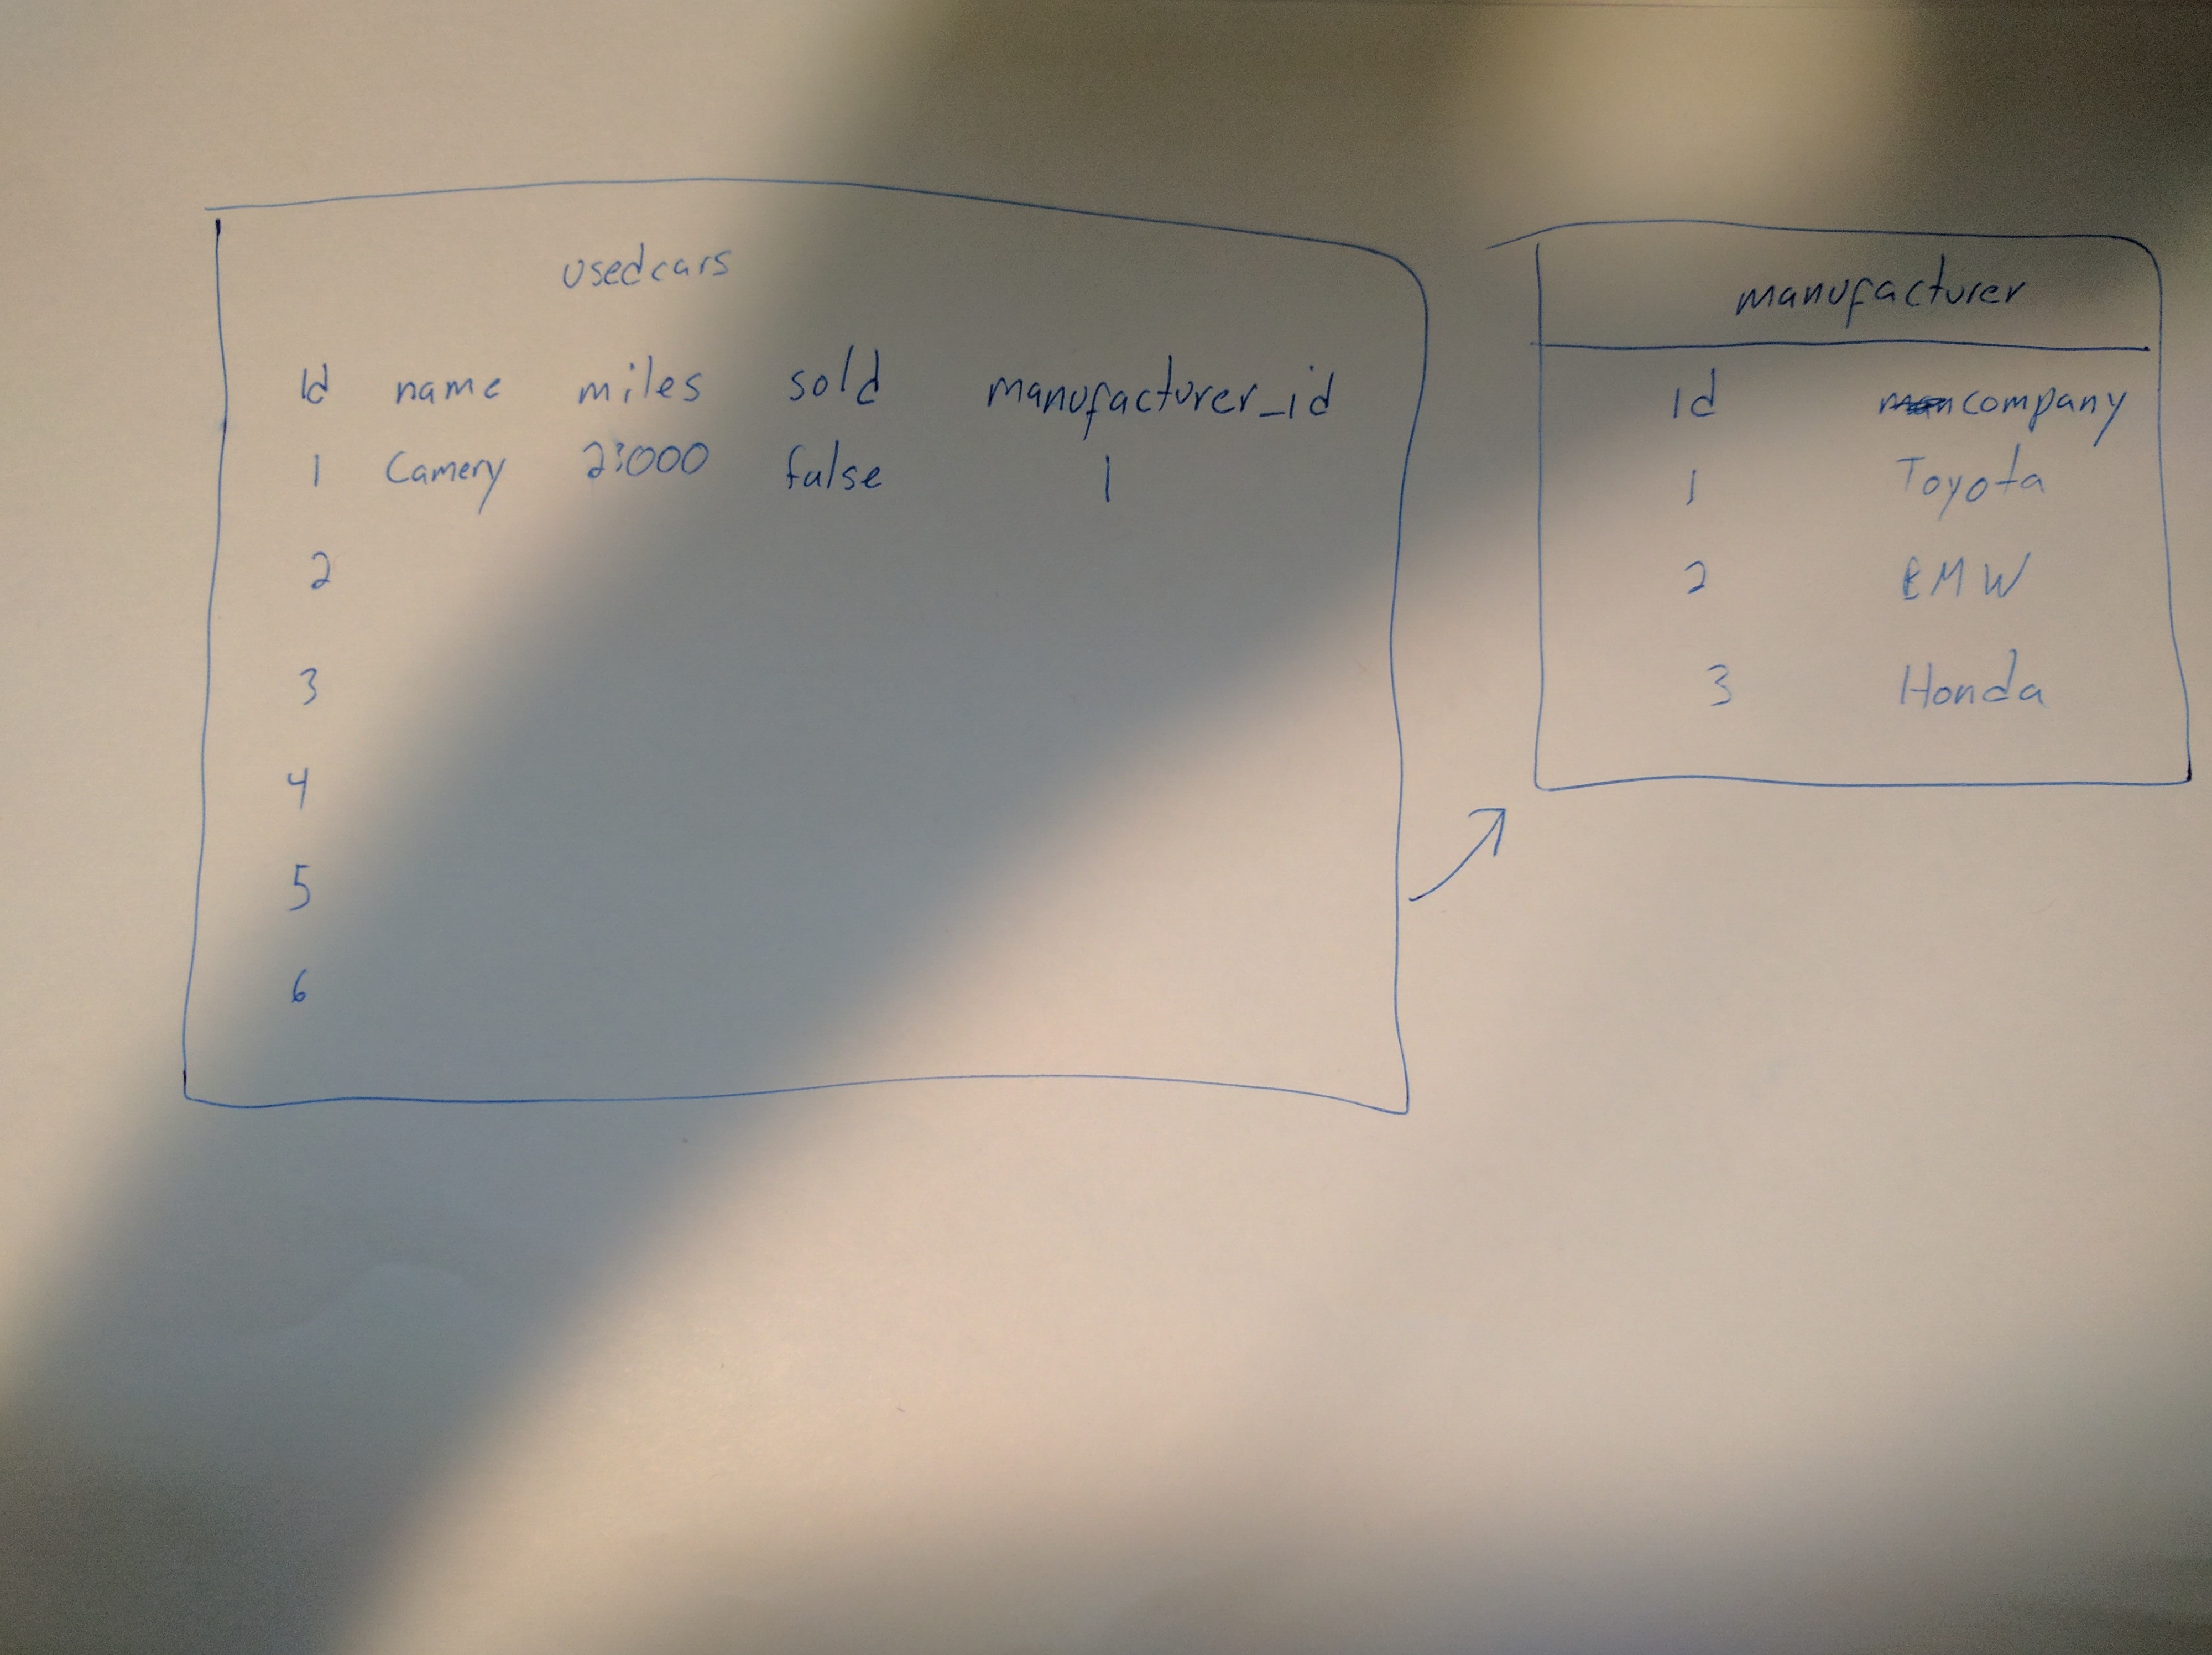 usedcars
Id name miles sold manufacturer_id
1 Camery 23000 false 1
2
3
4
5
6
manufacturer
Id company
1 Toyota
2 BMW
3 Honda